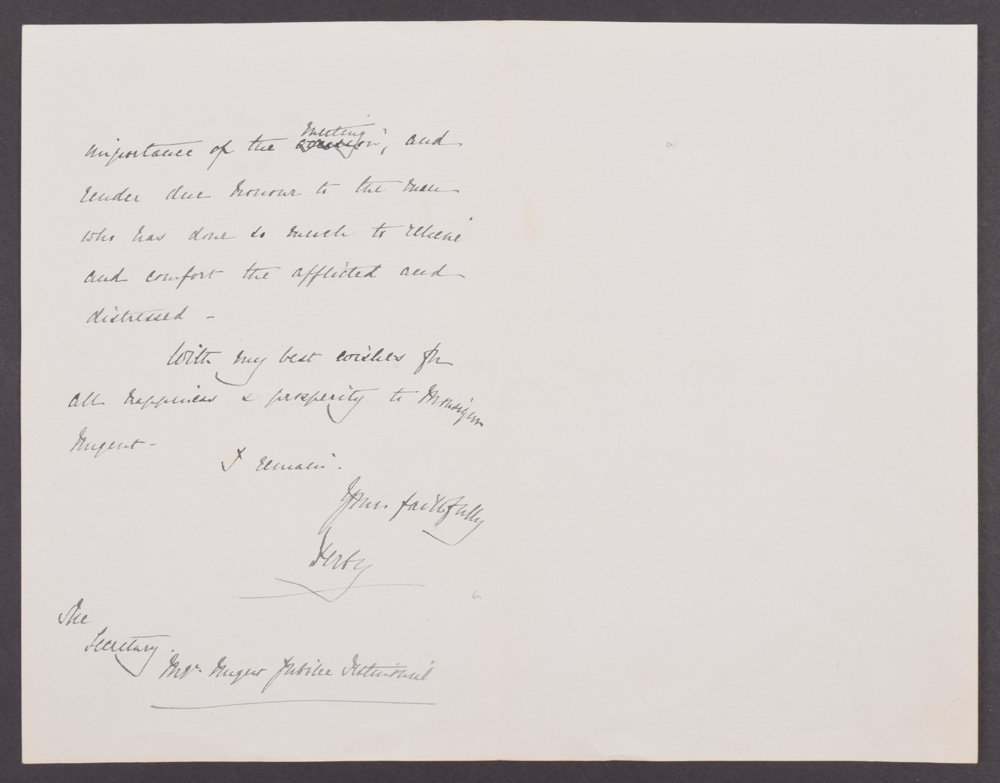 importance of the meeting, and
render due honour to the man
who has done so much to relieve
and comfort the afflicted and
distressed -
With my best wishes for
all happiness & prosperity to Monsignor
Nugent -
I remain.
Yours faithfully
Derby
The
Secretary.
Mgr. Nugent Jubilee Testimonial